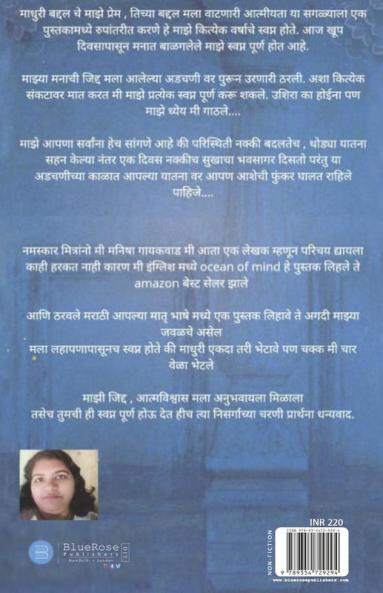 माधुरी बद्दल चे माझे प्रेम , तिच्या बद्दल मला वाटणारी आत्मीयता या सगळ्याला एक
पुस्तकामध्ये रुपांतरीत करणे हे माझे कित्येक वर्षाचे स्वप्न होते. आज खूप
दिवसापासून मनात बाळगलेले माझे स्वप्न पूर्ण होत आहे.
माझ्या मनाची जिद्द मला आलेल्या अडचणी वर पुरून उरणारी ठरली. अशा कित्येक
संकटावर मात करत मी माझे प्रत्येक स्वप्न पूर्ण करू शकले. उशिरा का होईना पण
माझे ध्येय मी गाठले....
माझे आपणा सर्वांना हेच सांगणे आहे की परिस्थिती नक्की बदलतेच , थोड्या यातना
सहन केल्या नंतर एक दिवस नक्कीच सुखाचा भवसागर दिसतो परंतु या
अडचणीच्या काळात आपल्या यातना वर आपण आशेची फुंकर घालत राहिले
पाहिजे....
नमस्कार मित्रांनो मी मनिषा गायकवाड मी आता एक लेखक म्हणून परिचय द्यायला
काही हरकत नाही कारण मी इंग्लिश मध्ये ocean of mind हे पुस्तक लिहले ते
amazon बेस्ट सेलर झाले
आणि ठरवले मराठी आपल्या मातृ भाषे मध्ये एक पुस्तक लिहावे ते अगदी माझ्या
जवळचे असेल
मला लहापणापासूनच स्वप्न होते की माधुरी एकदा तरी भेटावे पण चक्क मी चार
वेळा भेटले
माझी जिद्द , आत्मविश्वास मला अनुभवायला मिळाला
तसेच तुमची ही स्वप्न पूर्ण होऊ देत हीच त्या निसर्गाच्या चरणी प्रार्थना धन्यवाद.
INR 220
NON-FICTION
BlueRose
Publishers
NewDelhi • London
9 789354 729294
www.bluerosepublishers.com